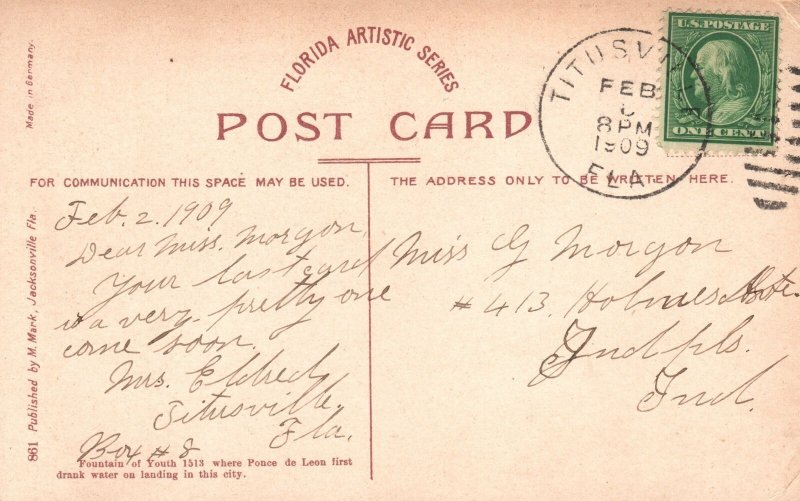 FLORIDA ARTISTIC SERIES
POST CARD
Made in Germany.
U.S. POSTAGE
ONE CENT
TITUSVILLE
FEB
8 PM
1909
FLA
FOR COMMUNICATION THIS SPACE MAY BE USED.
THE ADDRESS ONLY TO BE WRITTEN HERE.
Feb. 2. 1909
Dear Miss. Morgan,
Your last card
is a very. pretty one
come soon.
Mrs. Eldred
Titusville.
Fla.
Box # 8
Miss G Morgan
# 413. Holmes Ave.
Indpls.
Ind.
861 Published by M. Mark, Jacksonville Fla.
Fountain of Youth 1513 where Ponce de Leon first
drank water on landing in this city.